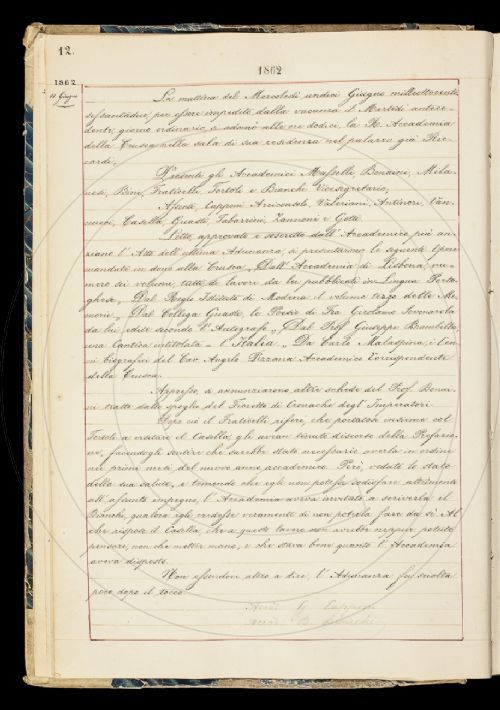 12.
1862
1862
11 Giugno
La mattina del Mercoledì undici Giugno milleottocento
sessantadue per essere impedita dalla vacanza il Martedì antece-
dente, giorno ordinario, si adunò alle ore dodici, la R. Accademia
della Crusca nella sala di sua residenza nel palazzo già Ric-
cardi.
Presenti gli Accademici Masselli Bonaini, Mila-
nesi, Bini, Fraticelli Tortoli e Bianchi Vicesegretario.
Assenti, Capponi Arciconsolo, Valeriani, Antinori, Van-
nucci, Casella, Guasti, Tabarrini, Zannoni e Gotti.
Letto, approvato e soscritto dall'Accademico più an-
ziano l'Atto dell'ultima Adunanza, si presentarono le seguenti Opere
mandate in dono alla Crusca „ Dall'Accademia di Lisbona nu-
mero sei volumi, tutti di lavori da lei pubblicati in Lingua Porto-
ghese „ Dal Regio Istituto di Modena il volume terzo delle Me-
morie „ Dal Collega Guasti, le Poesie di Fra Girolamo Savonarola
da lui edite secondo l'Autografo „ Dal Prof. Giuseppe Brambilla,
una Cantica intitolata = l'Italia „ Da Carlo Malaspina, i Cen-
ni biografici del Cav. Angelo Pezzana Accademico Corrispondente
della Crusca.
Appresso, si annunziarono altre schede del Prof. Bonai-
ni tratte dallo spoglio del Fioretto di Cronache degl'Imperatori.
Dopo ciò il Fraticelli riferì, che portatosi insieme col
Tortoli a visitare il Casella, gli avean tenuto discorso della Prefazio-
ne, facendogli sentire che sarebbe stato necessario averla in ordine
nei primi mesi del nuovo anno accademico. Però, veduto lo stato
della sua salute, e temendo che egli non potesse sodisfare altrimenti
all'assunto impegno, l'Accademia aveva invitato a scriverla il
Bianchi, qualora egli credesse veramente di non poterla fare da sè. Al
che rispose il Casella, che a questo lavoro non avrebbe neppur potuto
pensare, non che metter mano, e che stava bene quanto l'Accademia
aveva disposto.
Non essendovi altro a dire, l'Adunanza fu sciolta
poco dopo il tocco.
G. Capponi
B. Bianchi